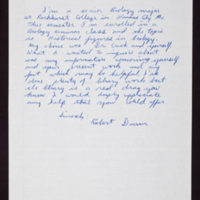 I'm a senior Biology major
at Rockhurst College in Kansas City Mo.
This semester I'm enrolled in a
Biology seminar class and the topic
is Historical figures in biology.
My choice was Dr. Crick and yourself.
What I wanted to inquire about
was any information concerning yourself
and your present work and any
fact which may be helpful. I've
done plenty of library work but
the library is a real drag you
know. I would deeply appreciate
any help that you could offer.
Sincerely,
Robert